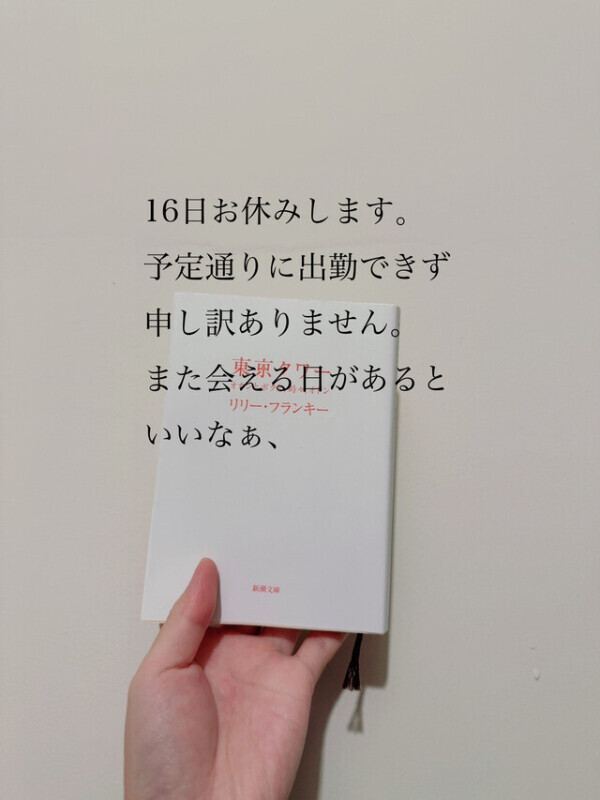 16日お休みします。
予定通りに出勤できず
申し訳ありません。
東京タワー
また会える日があると
リリー・フランキー
いいなぁ、
新潮文庫